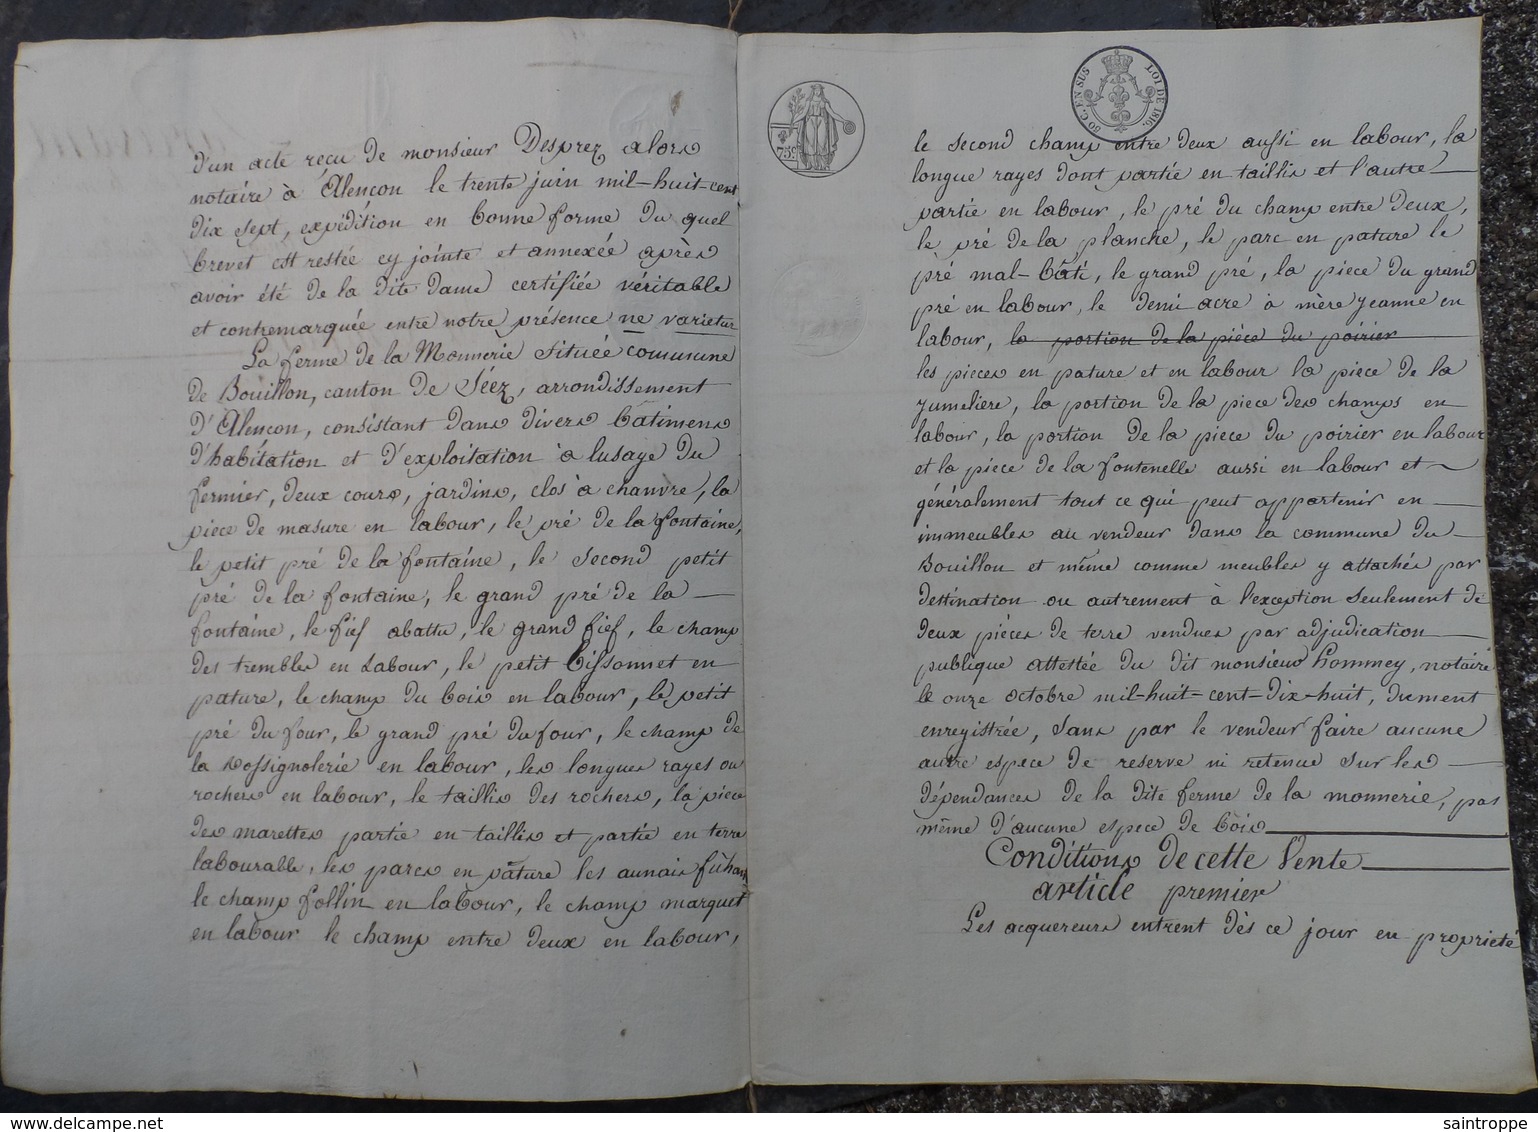 d'un acte reçu de monsieur Desprez alors
notaire à Alençon le trente juin mil-huit-cent
dix sept, expédition en bonne forme du quel
brevet est restée cy jointe et annexée après
avoir été de la dite dame certifiée véritable
et contremarquée entre notre présence ne varietur
La ferme de la Monnerie située commune
de Bouillon, canton de Séez, arrondissement
d'Alençon, consistant dans divers bâtimens
d'habitation et d'exploitation à lusage du
fermier, deux cours, jardins, clos à chanvre, la
piece de masure en labour, le pré de la fontaine,
le petit pré de la fontaine, le second petit
pré de la fontaine, le grand pré de la
fontaine, le fief abattu, le grand fief, le champ
des trembles en labour, le petit bissonnet en
pature, le champ du bois en labour, le petit
pré du four, le grand pré du four, le champ de
la rossignolerie en labour, les longues rayes ou
rochers en labour, le taillis des rochers, la piece
des marettes partie en taillis et partie en terre
labourable, les parcs en pature les aunais
le champ follin en labour, le champ marquet
en labour le champ entre deux en labour,
75c
80 C. EN SUS LOI DE 1816.
le second champ entre deux aussi en labour, la
longue rayes dont partie en taillis et l'autre
partie en labour, le pré du champ entre deux,
le pré de la planche, le parc en pature le
pré mal-bâti, le grand pré, la piece du grand
pré en labour, le demi acre à mère jeanne en
labour, la portion de la pièce du poirier
les pieces en pature et en labour la piece de la
jumeliere, la portion de la piece des champs en
labour, la portion de la piece du poirier en labour
et la piece de la fontenelle aussi en labour et
généralement tout ce qui peut appartenir en
immeubles au vendeur dans la commune du
Bouillon et même comme meubles y attachés par
destination ou autrement à l'exception seulement de
deux pièces de terre vendues par adjudication
publique attestée du dit monsieur hommey, notaire
le onze octobre mil-huit-cent-dix-huit, dument
enregistrée, sans par le vendeur faire aucune
autre espece de reserve ni retenue sur les
dépendances de la dite ferme de la monnerie, pas
même d'aucune espece de bois
Conditions de cette Vente
article premier
Les acquereurs entrent dès ce jour en propriété
saintroppe